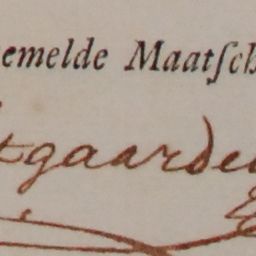 emelde Maatſch
gaarde